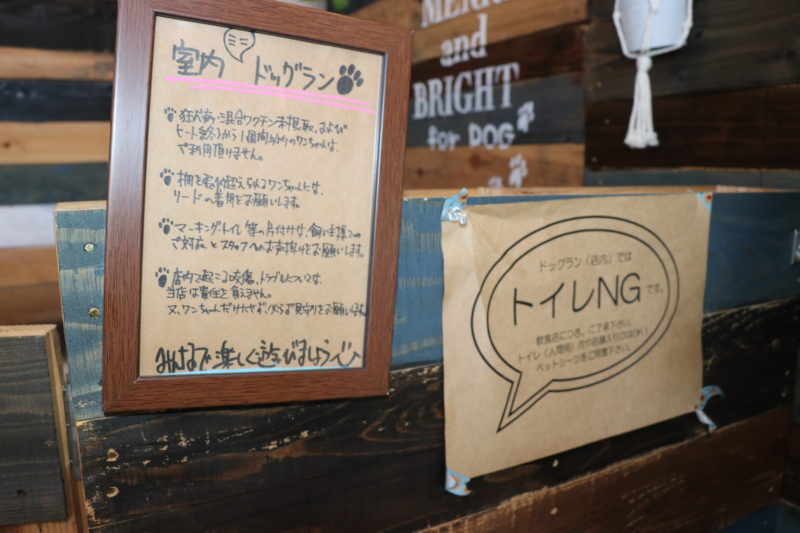 室内 ドッグラン
狂犬病・混合ワクチン未摂取、および
ヒート終了から1週間以内のワンちゃんは、
ご利用頂けません。
柵を飛び超えられるワンちゃんには、
リードの着用をお願いします。
マーキング・トイレ等の片付けは、飼い主様での
ご対応とスタッフへのお声掛けをお願いします。
店内で起こる咬傷、トラブルについては、
当店は責任を負えません。
又、ワンちゃんだけにせず、必らず見守りをお願いします
みんなで楽しく遊びましょう♪
MERRY
and
BRIGHT
for DOG
ドッグラン(店内)では
トイレNGです。
飲食店につき、ご了承下さい。
トイレ(人間用)内や店舗入り口はOK!
ペットシーツをご用意下さい。